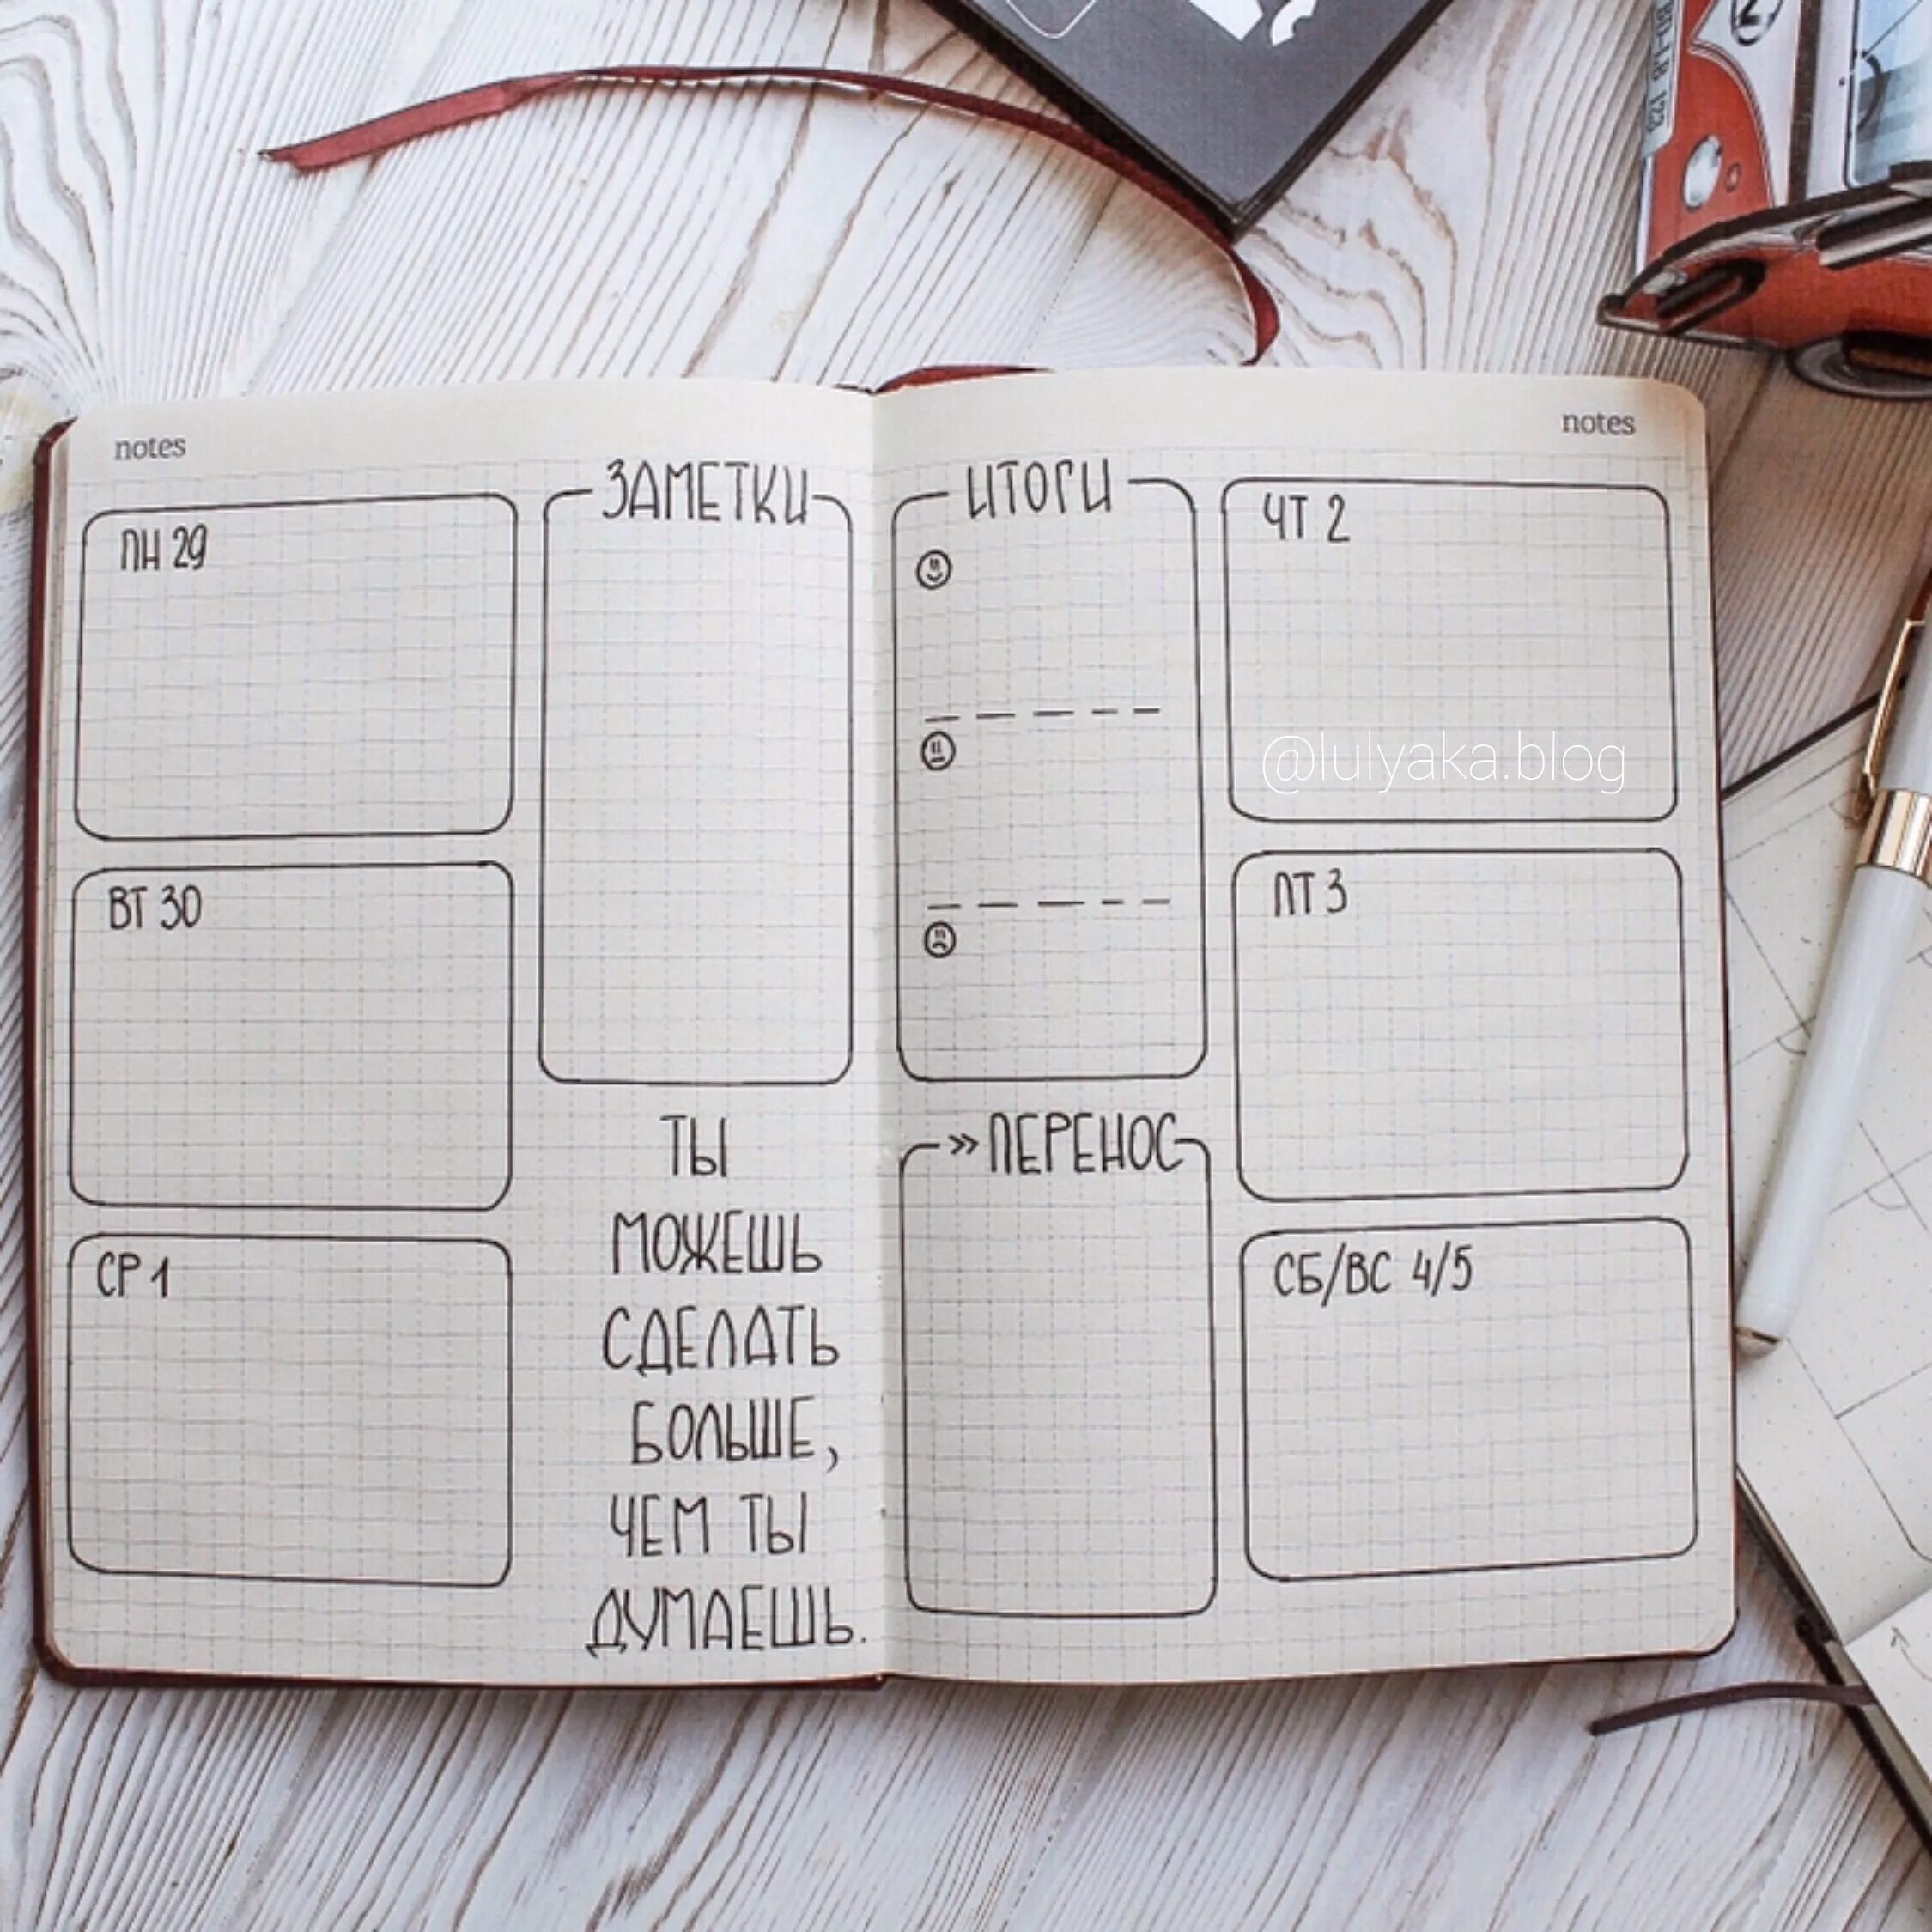 notes
ПН 29
ВТ 30
СР 1
ЗАМЕТКИ
ТЫ
МОЖЕШЬ
СДЕЛАТЬ
БОЛЬШЕ,
ЧЕМ ТЫ
ДУМАЕШЬ.
notes
ИТОГИ
» ПЕРЕНОС
ЧТ 2
@lulyaka.blog
ПТ 3
СБ/ВС 4/5